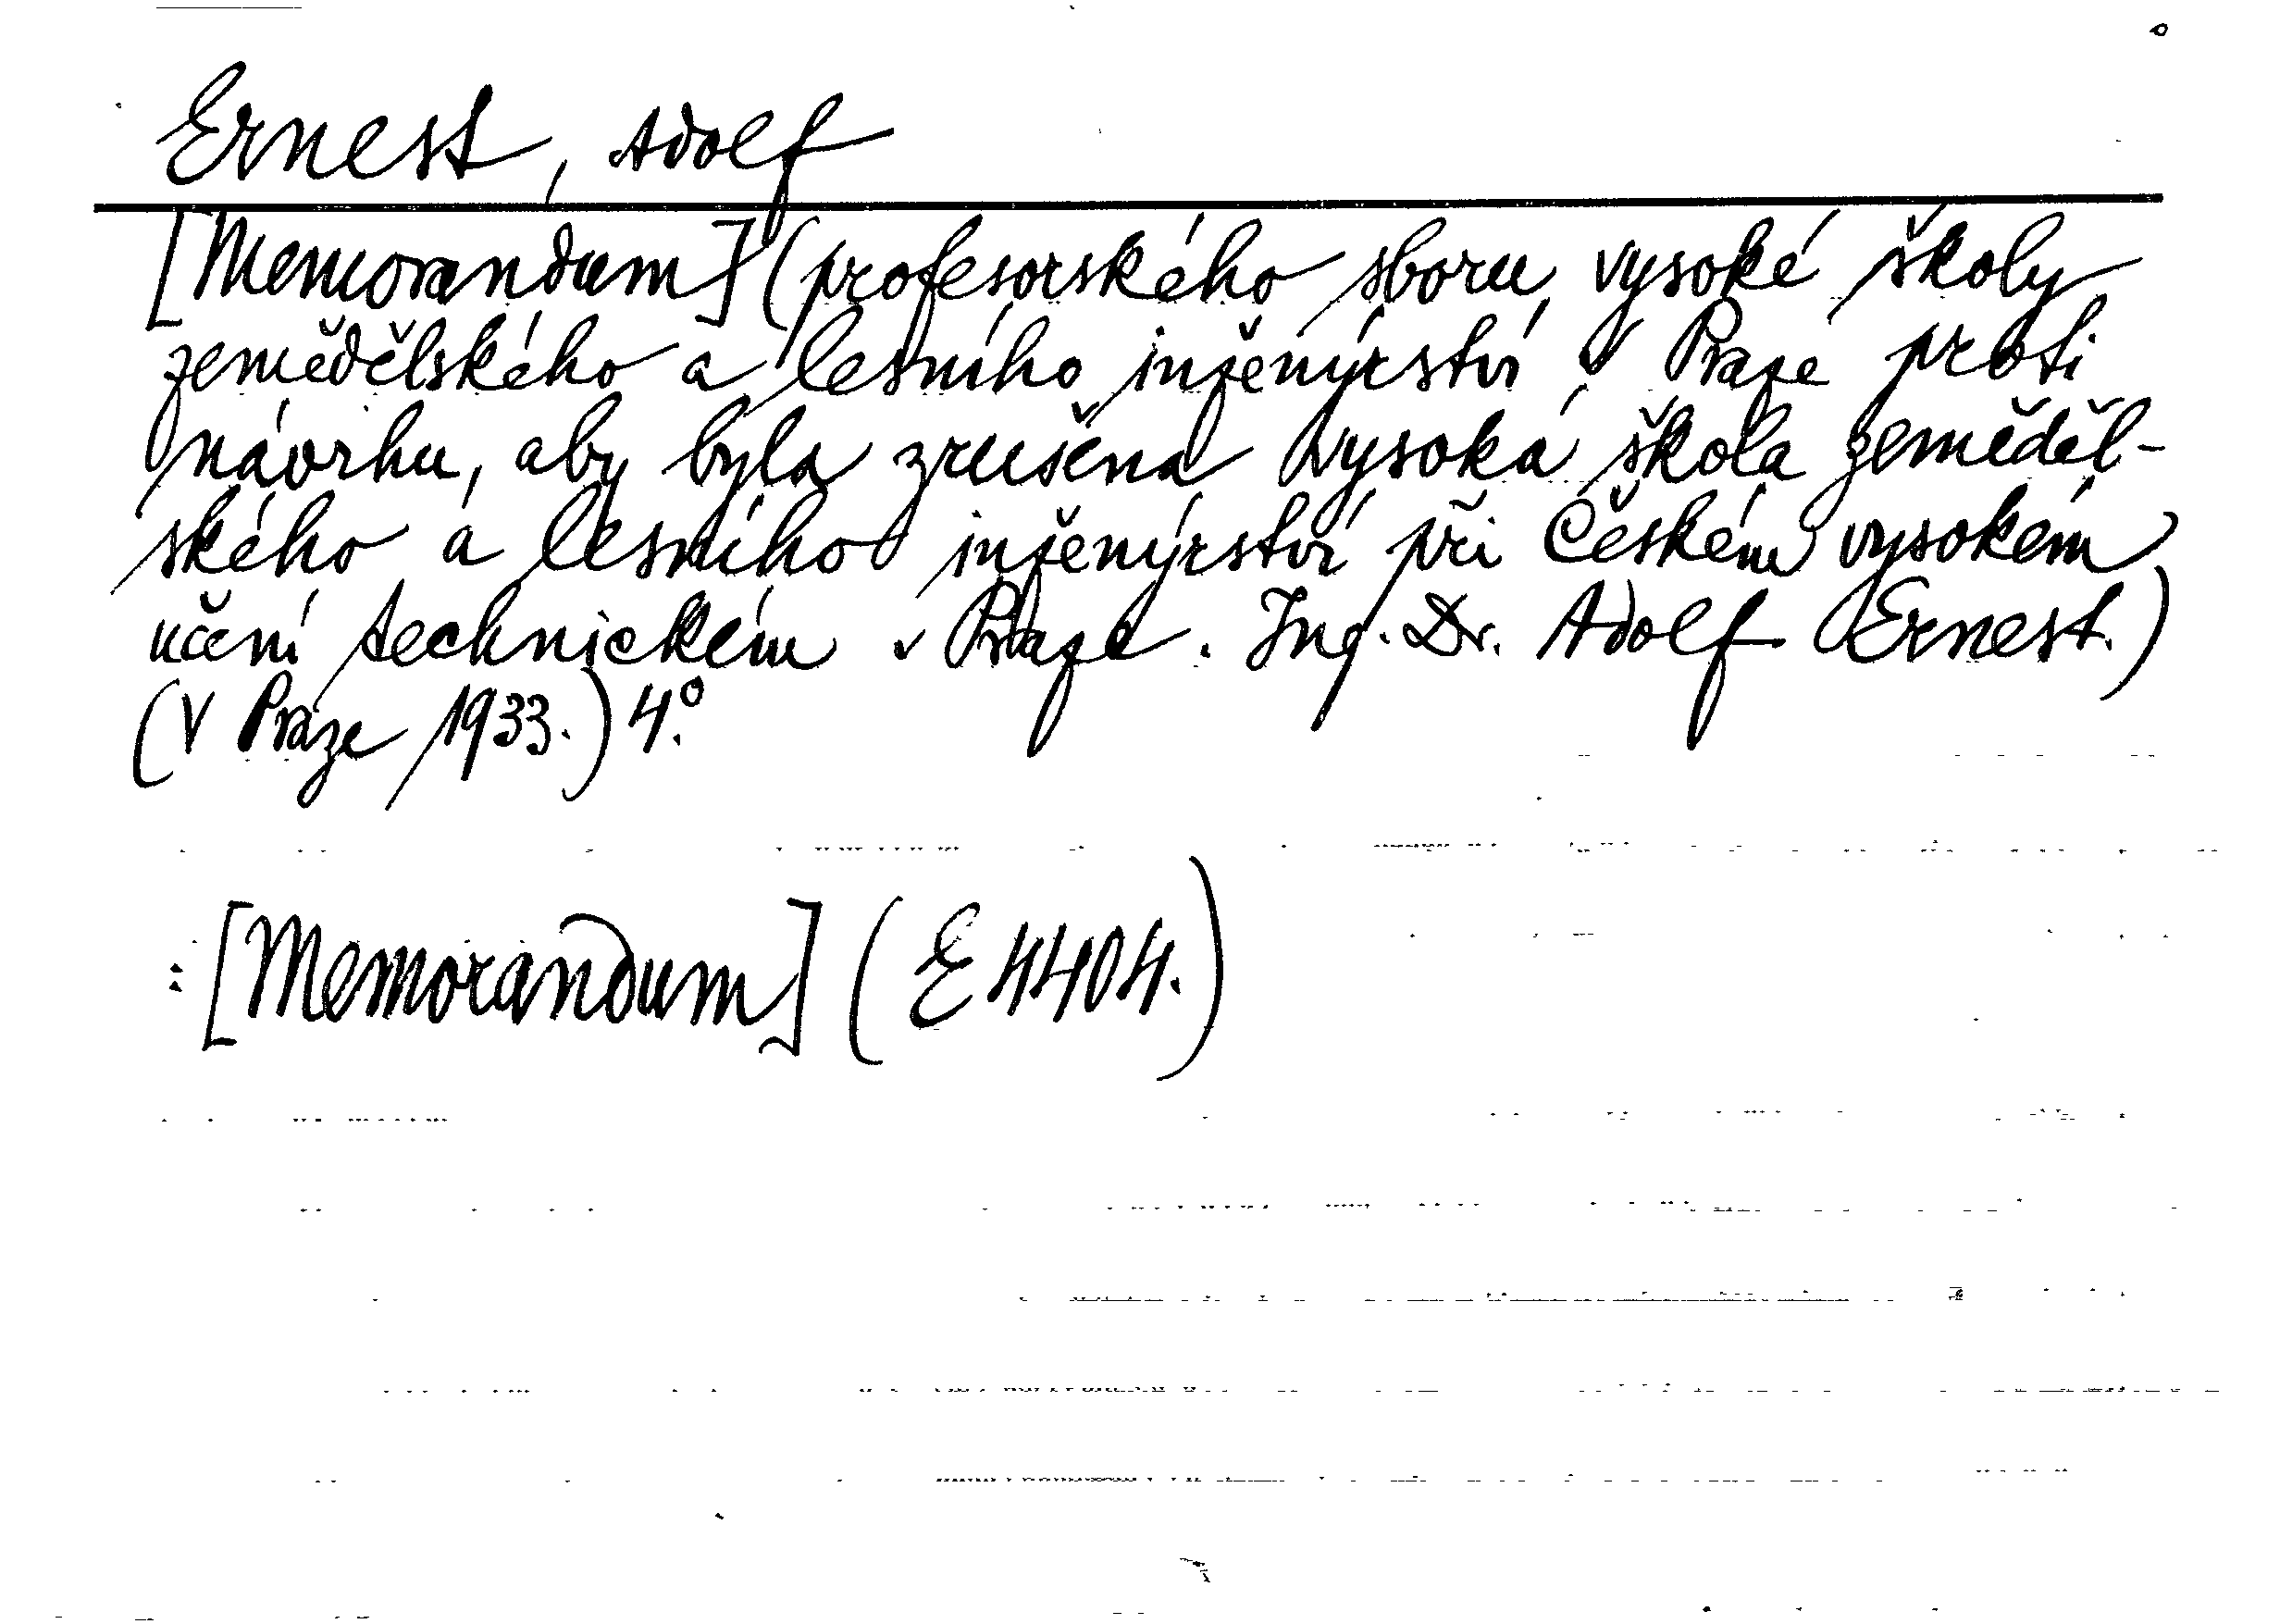 Ernest, Adolf
[Memorandum] (profesorského sboru vysoké školy
zemědělského a lesního inženýrství v Praze proti
návrhu, aby byla zrušena vysoká škola zeměděl-
ského a lesního inženýrství při Českém vysokém
učení technickém v Praze. Ing. Dr. Adolf Ernest.)
(V Praze 1933.) 4°.
[Memorandum] (E 4404.)